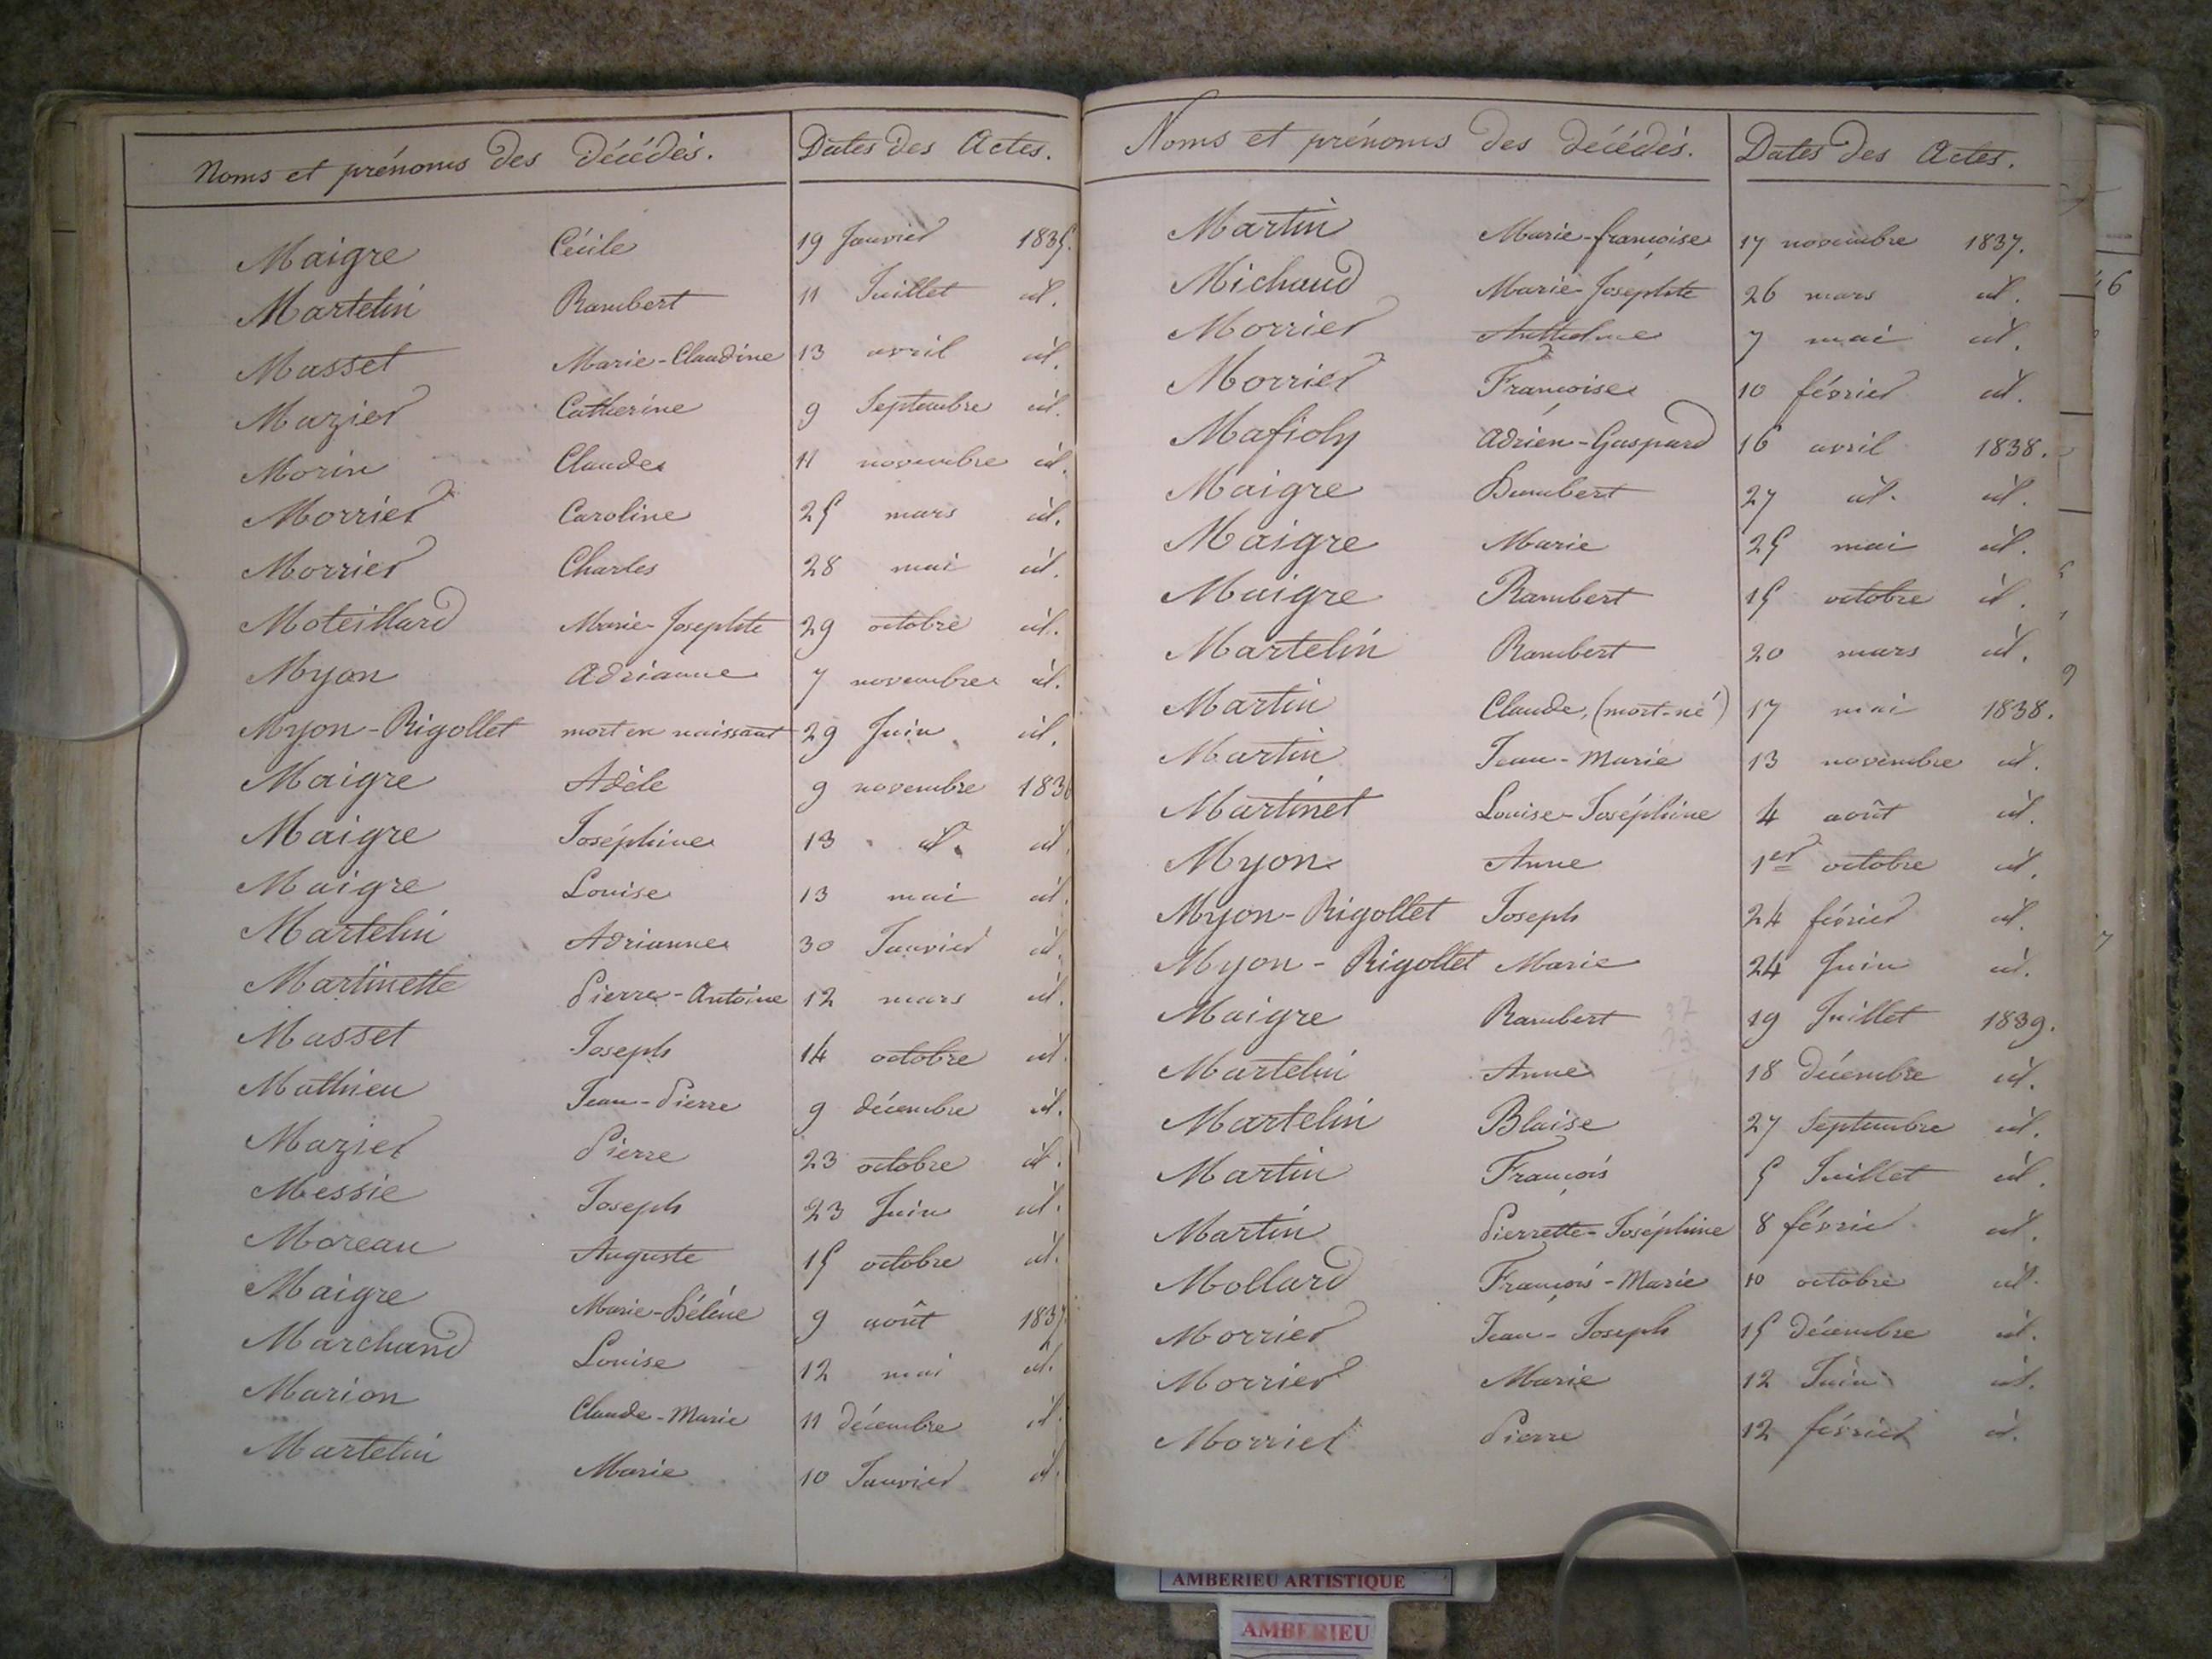 Noms et prénoms des décédés. Dates des Actes.
Maigre Cécile 19 Janvier 1835.
Martelin Rambert 11 Juillet id.
Masset Marie-Claudine 13 avril id.
Mazier Catherine 9 Septembre id.
Morin Claude 11 novembre id.
Morrier Caroline 25 mars id.
Morrier Charles 28 mai id.
Moteillard Marie-Josephte 29 octobre id.
Myon Adrianne 7 novembre id.
Myon-Rigollet mort en naissant 29 Juin id.
Maigre Adèle 9 novembre 1836
Maigre Joséphine 13 id. id.
Maigre Louise 13 mai id.
Martelin Adrianne 30 Janvier id.
Martinette Pierre-Antoine 12 mars id.
Masset Joseph 14 octobre id.
Mathieu Jean-Pierre 9 décembre id.
Mazier Pierre 23 octobre id.
Messie Joseph 23 Juin id.
Moreau Auguste 15 octobre id.
Maigre Marie-Hélène 9 août 1837
Marchand Louise 12 mai id.
Marion Claude-Marie 11 décembre id.
Martelin Marie 10 Janvier id.
Noms et prénoms des décédés. Dates des Actes.
Martin Marie-françoise 17 novembre 1837.
Michaud Marie-Josephte 26 mars id.
Morrier Anthelme 7 mai id.
Morrier Françoise 10 février id.
Mafioly Adrien-Gaspard 16 avril 1838.
Maigre Humbert 27 id. id.
Maigre Marie 25 mai id.
Maigre Rambert 15 octobre id.
Martelin Rambert 20 mars id.
Martin Claude, (mort-né) 17 mai 1838.
Martin Jean-Marie 13 novembre id.
Martinet Louise-Joséphine 4 août id.
Myon Anne 1er octobre id.
Myon-Rigollet Joseph 24 février id.
Myon-Rigollet Marie 24 Juin id.
Maigre Rambert 19 Juillet 1839.
Martelin Anne 18 décembre id.
Martelin Blaise 27 Septembre id.
Martin François 5 Juillet id.
Martin Pierrette-Joséphine 8 février id.
Mollard François-Marie 10 octobre id.
Morrier Jean-Joseph 15 décembre id.
Morrier Marie 12 Juin id.
Morrier Pierre 12 février id.
AMBERIEU ARTISTIQUE
AMBERIEU